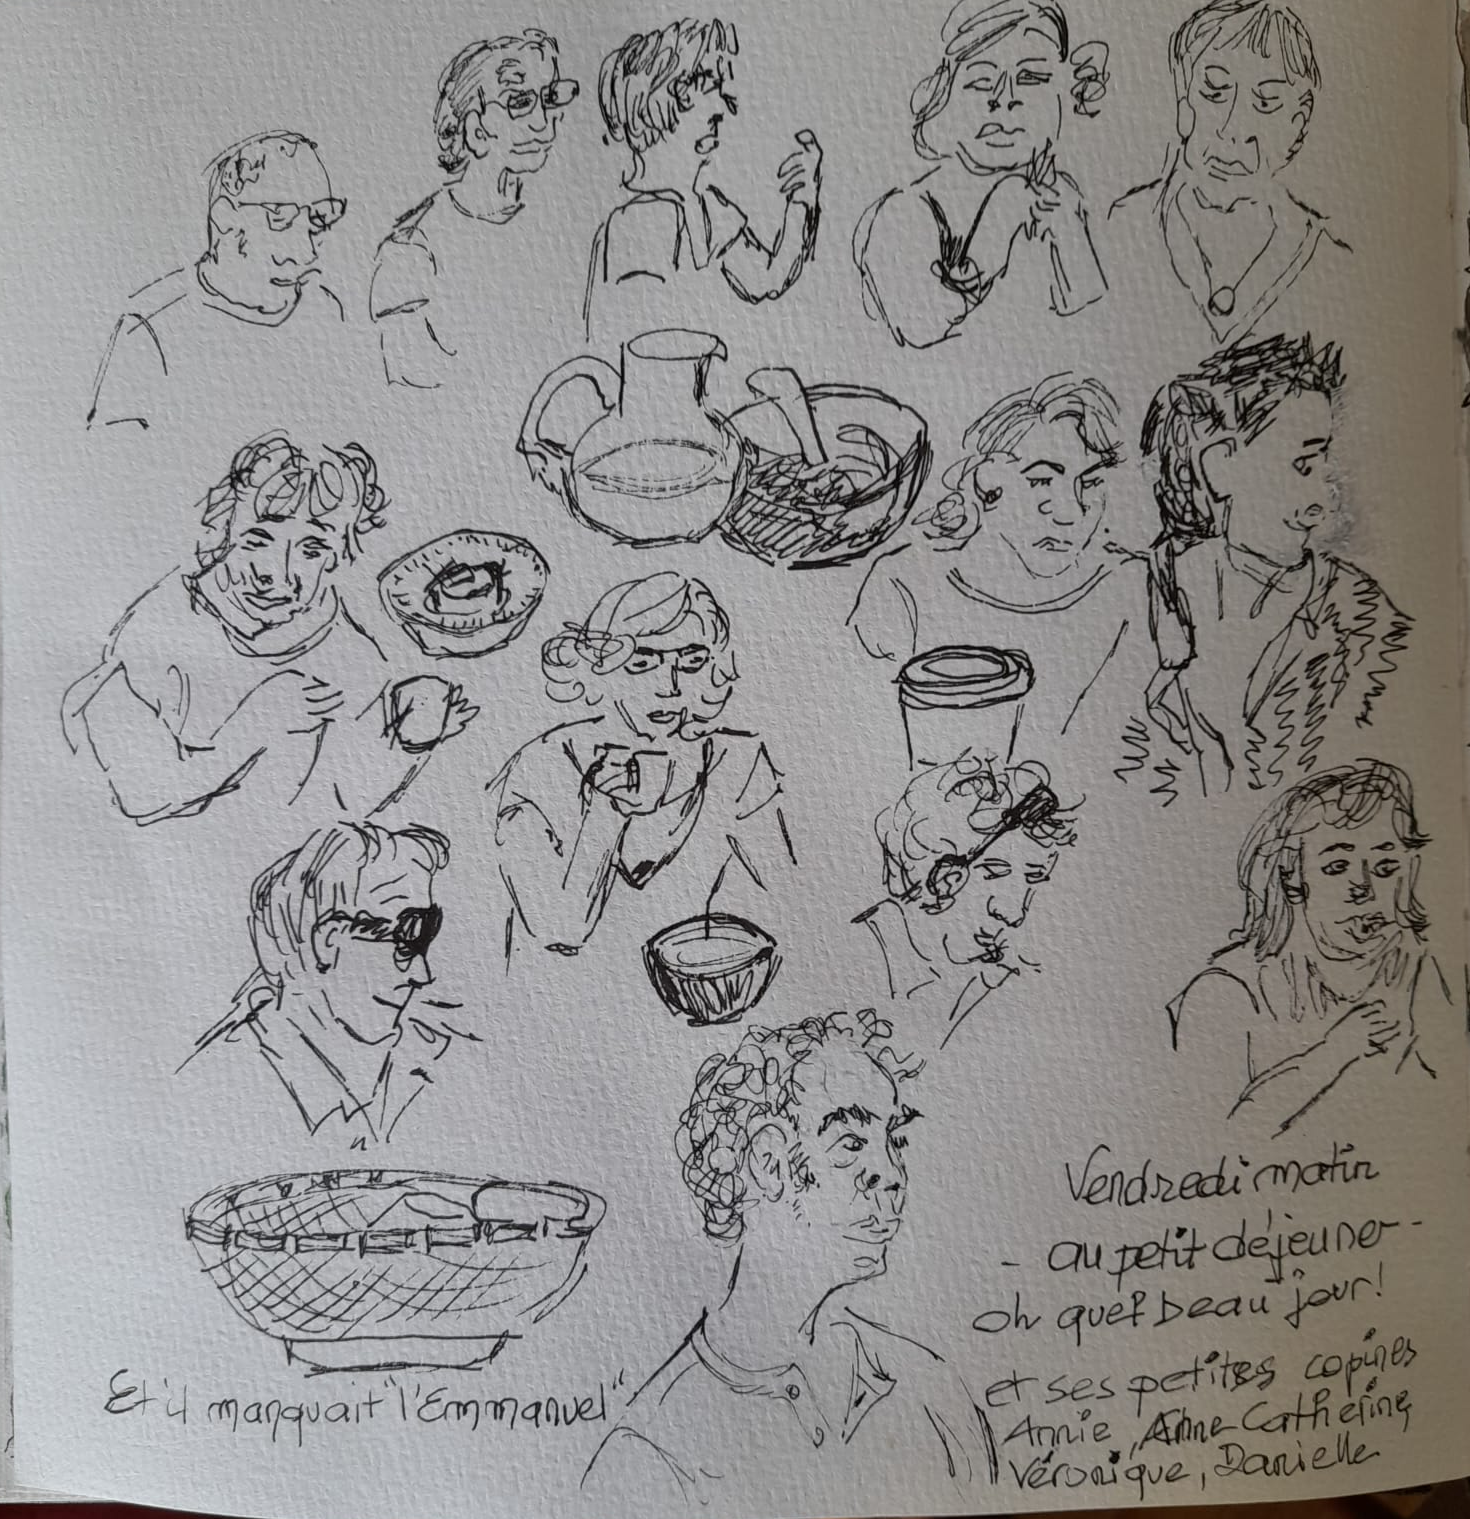 Vendredi matin
- au petit déjeuner -
oh quel beau jour!
et ses petites copines
Annie, Anne Catherine,
Véronique, Danielle
Et il manquait "l'Emmanuel"